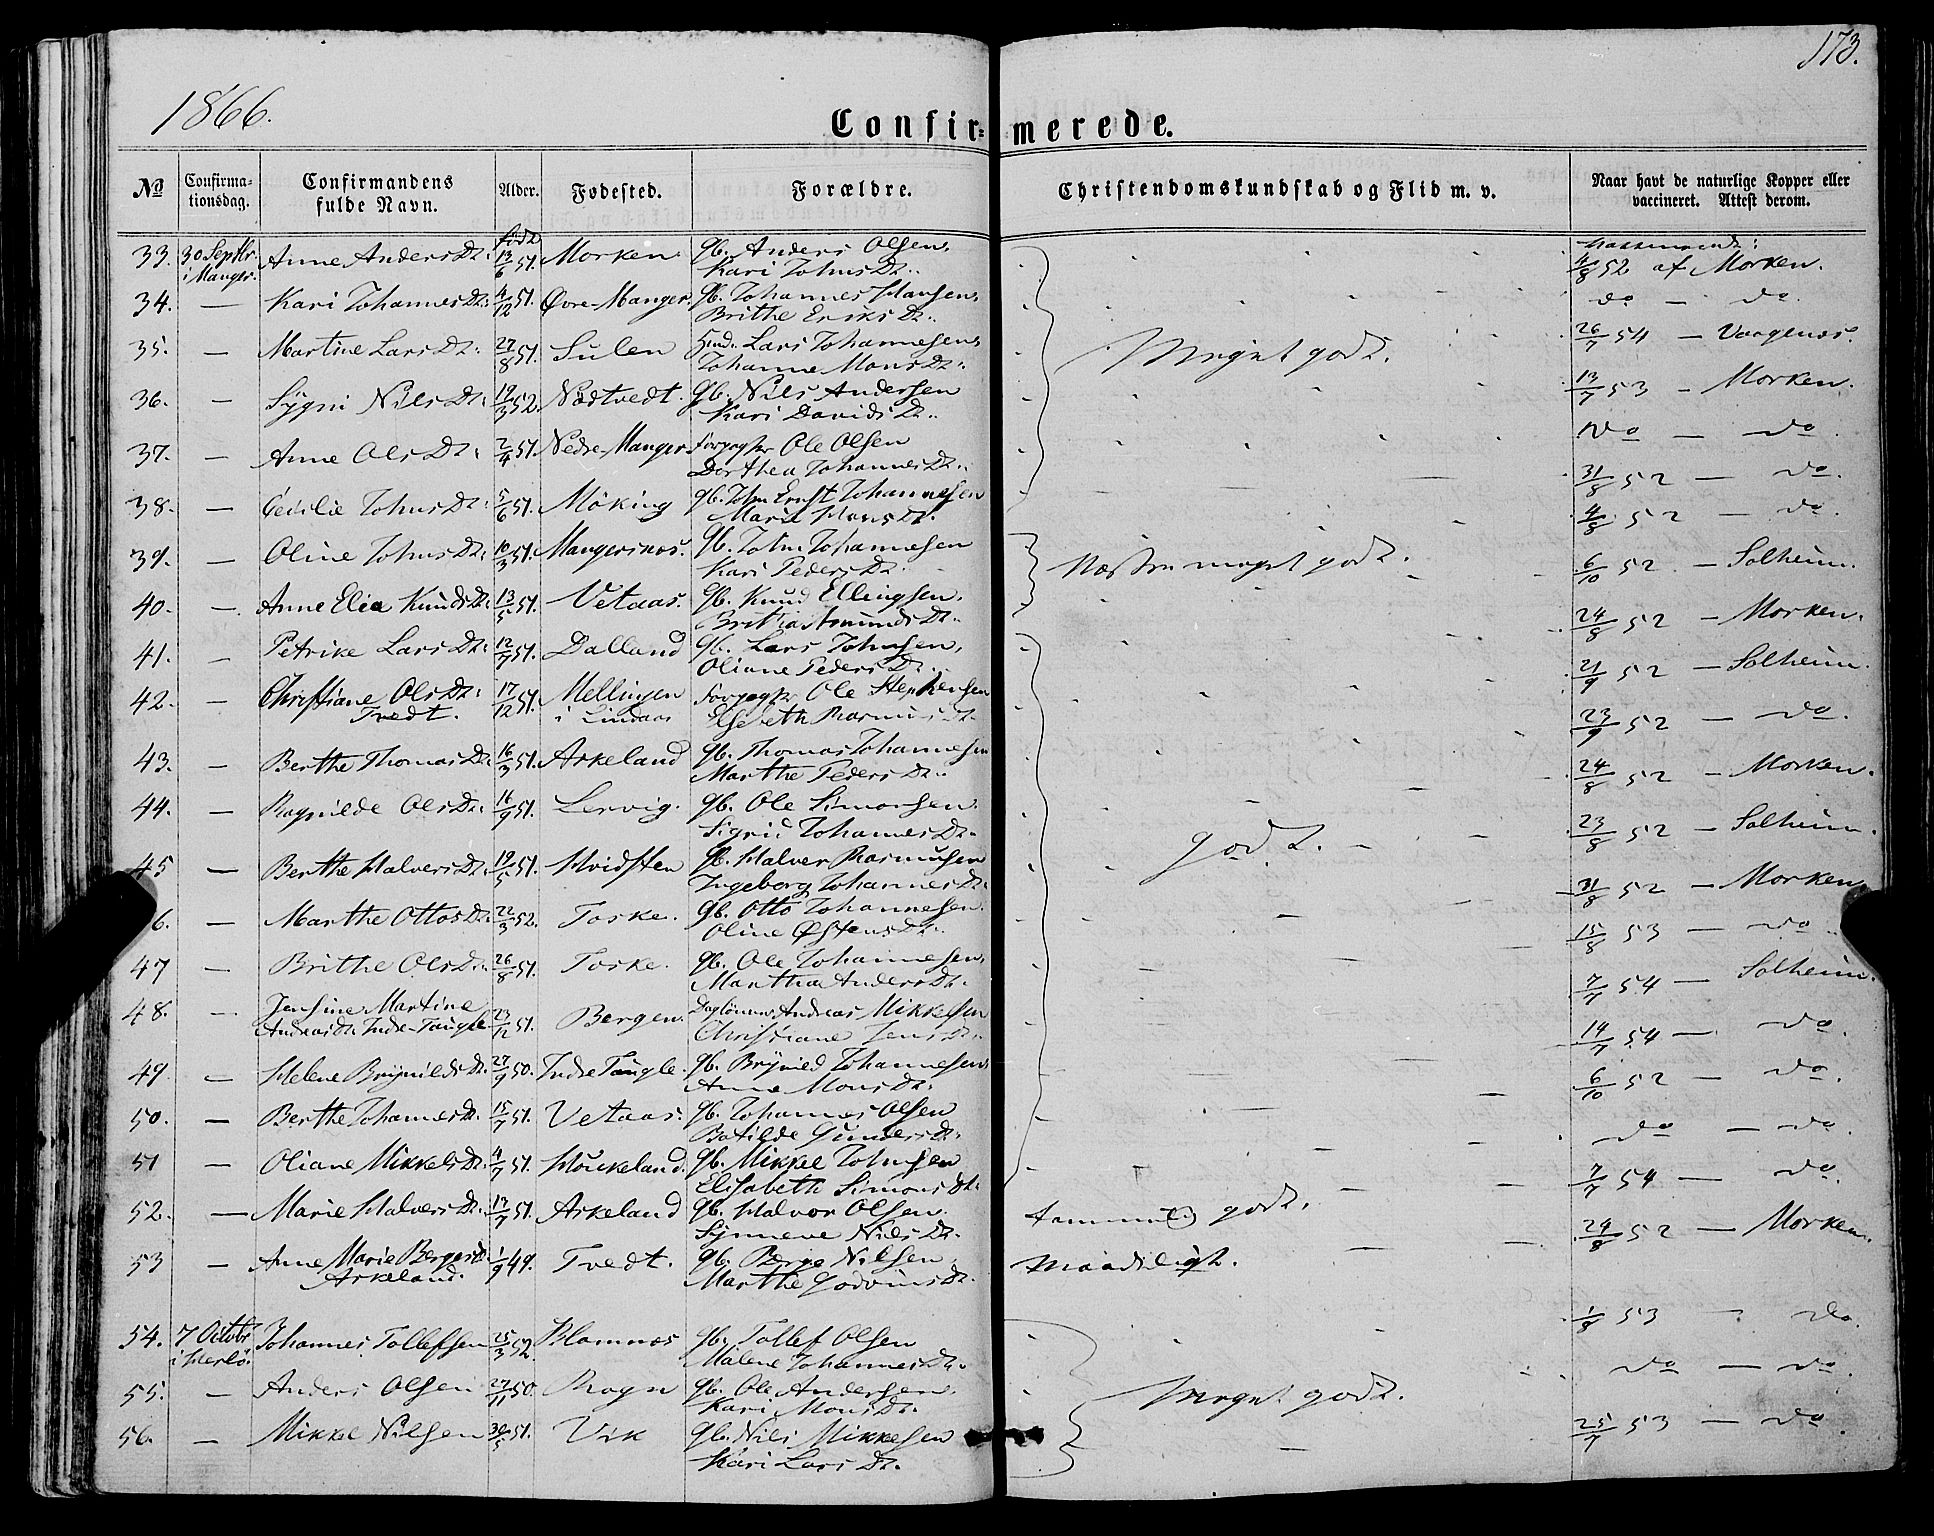 173.
1866.
Confirmerede.
No Confirmationsdag. Confirmandens fulde Navn. Alder. Fødested. Forældre. Christendomskundskab og Flid m. v. Naar havt de naturlige Kopper eller vaccineret. Attest derom.
33. 30 Septbr. i Manger. Anne AndersDr. født 13/6 51. Morken Gb. Anders Olsen, Kari JohnsDr. 4/8 52 af Morken.
34. — Kari JohannesDr. 4/12 51. Øvre-Manger. Gb. Johannes Hansen, Brithe EriksDr. do — do.
35. — Martine LarsDr. 27/8 51. Sulen Lars Johannesen, Johanne MonsDr. Meget godt. 26/7 54 — Vaagenæs.
36. — Sygni NilsDr. 19/3 52. Nødtvedt. Gb. Nils Andersen Kari DavidsDr. 13/7 53 — Morken.
37. — Anne OlsDr. 2/4 51. Nedre-Manger Ole Olsen Dorthea JohannesDr. do — do.
38. — Cecilie JohnsDr. 5/6 51. Möking Gb. John Ernst Johannesen Marie HansDr. 31/8 52 — do.
39. — Oline JohnsDr. 10/3 51. Mangersnæs. Gb. John Johannesen Kari PedersDr. Næsten meget godt. 4/8 52 — do.
40. — Anne Elia KnudsDr. 13/5 51. Vetaas. Gb. Knud Ellingsen, Britha AmundsDr. 6/10 52 — Solheim.
41. — Petrike LarsDr. 12/7 51. Dalland Gb. Lars Johnsen, Oliane PedersDr. 24/8 52 — Morken.
42. — Christiane OlsDr. Tvedt. 17/12 51. Mellingen i Lindaas Ole Stephensen Elsebeth RasmusDr. 21/9 52 — Solheim.
43. — Berthe ThomasDr. 16/3 51. Askeland Gb. Thomas Johannesen Marthe PedersDr. 23/9 52 — do.
44. — Ragnilde OlsDr. 16/9 51. Lervig. Gb. Ole Simonsen Sigrid JohannesDr. godt. 24/8 52 — Morken.
45 — Berthe HalversDr. 19/5 51. Hvidsten Gb. Halver Rasmussen Ingeborg JohannesDr. 23/8 52 — Solheim.
6. — Marthe OttosDr. 22/3 52. Toske. Gb. Otto Johannesen. Oline ØstensDr. 31/8 52 — Morken
47 — Brithe OlsDr. 26/8 51. Toske. Gb. Ole Johannesen, Martha AndersDr. 15/8 53 — do.
48. — Jensine Martine AndreasDr. Indre-Taugle 23/12 51. Bergen. Andreas Mikkelsen Christiane JensDr. 7/7 54 — Solheim.
49 — Helene BrynildsDr. 27/9 50. Indre Taugle. Gb. Brynild Johannesen, Anne MonsDr. 14/7 54 — do.
50. — Berthe JohannesDr. 15/7 51. Vetaas. Gb. Johannes Olsen Botilde GundersDr. 6/10 52 — do.
51 — Oliane MikkelsDr. 4/7 51. Houkeland. Gb. Mikkel Johnsen Elisabeth SimonsDr. do — do.
52. — Marie HalversDr. 17/7 51. Askeland Gb. Halvor Olsen. Synneve NielsDr. temmelig godt. 7/7 54 — do.
53 — Anne Marie BergesDr. Askeland. 1/9 49. Tvedt. Gb. Berge Nilsen, Marthe GodvinsDr. Maadeligt. 24/8 52 — Morken.
54. 7 Octobr i Herlø. Johannes Tollefsen 25/3 52. Blomnæs Gb. Tollef Olsen Malene JohannesDr. 1/8 53 — do.
55. — Anders Olsen 27/11 50. Rogn Gb. Ole Andersen, Kari MonsDr. Meget godt. do — do.
56. — Mikkel Nilsen 30/5 51. Vik Gb. Nils Mikkelsen Kari LarsDr. 25/7 53 — do.